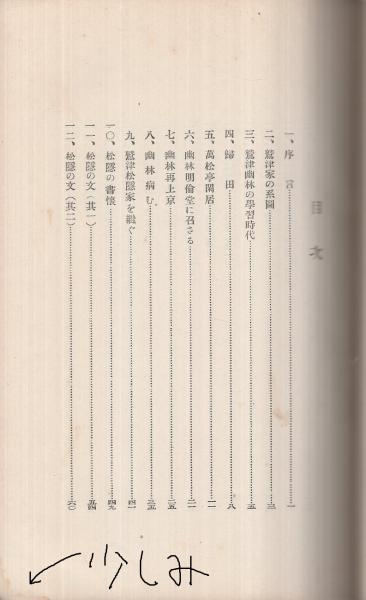 目次
一、序言……一
二、鷲津家の系圖……三
三、鷲津幽林の學習時代……五
四、歸田……八
五、萬松亭閑居……一一
六、幽林明倫堂に召さる……二一
七、幽林再上京……二五
八、幽林病む……三五
九、鷲津松隱家を繼ぐ……四一
一〇、松隱の書懷……四九
一一、松隱の文（其一）……五四
一二、松隱の文（其二）……六〇
少しみ